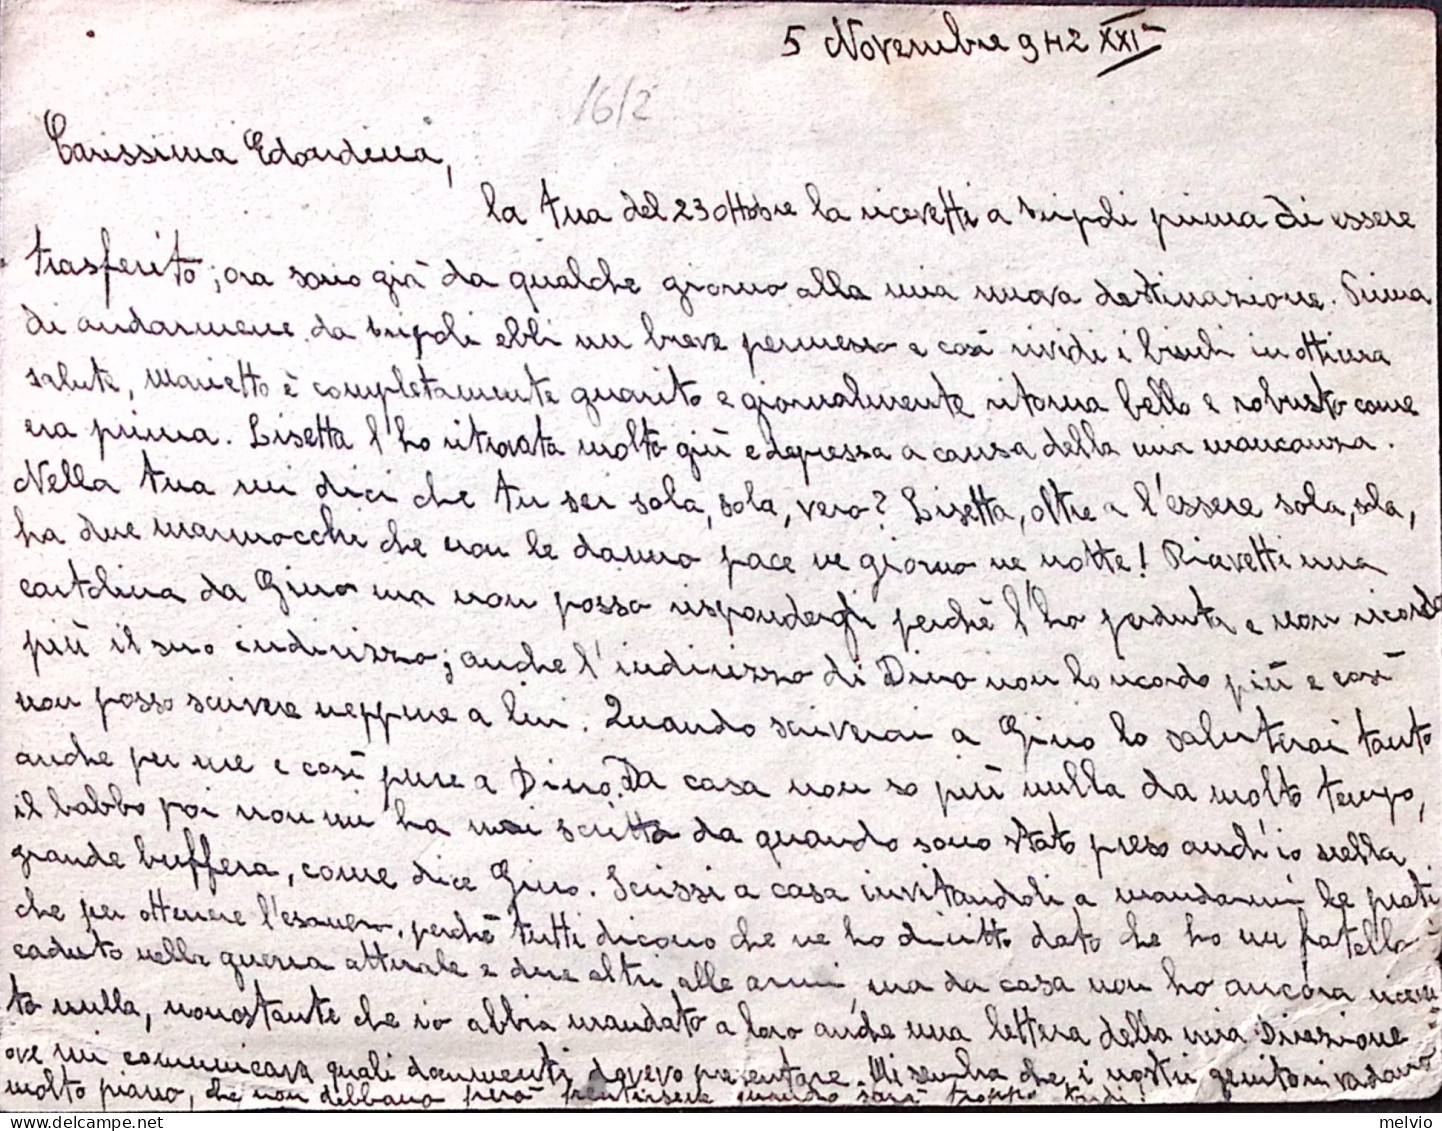 5 Novembre 942 XXIº
1612
Carissima Edoardina,
la tua del 23 ottobre la ricevetti a Tripoli prima di essere
trasferito; ora sono già da qualche giorno alla mia nuova destinazione. Prima
di andarmene da Tripoli ebbi un breve permesso e così rividi i bimbi in ottima
salute, Marietto è completamente guarito e giornalmente ritorna bello e robusto come
era prima. Lisetta l'ho ritrovata molto giù e depressa a causa della mia mancanza.
Nella tua mi dici che tu sei sola, sola, vero? Lisetta, oltre a l'essere sola, sola,
ha due marmocchi che non le danno pace ne giorno ne notte! Ricevetti una
cartolina da Gino ma non posso rispondergli perchè l'ho perduta e non ricordo
più il suo indirizzo; anche l'indirizzo di Dino non lo ricordo più e così
non posso scrivere neppure a lui. Quando scriverai a Gino lo saluterai tanto
anche per me e così pure a Dino. Da casa non so più nulla da molto tempo,
il babbo poi non mi ha mai scritto da quando sono stato preso anch'io nella
grande buffera, come dice Gino. Scrissi a casa invitandoli a mandarmi le prati
che per ottenere l'esonero, perchè tutti dicono che ne ho diritto dato che ho un fratello
caduto nella guerra attuale e due altri alle armi, ma da casa non ho ancora ricevu
to nulla, nonostante che io abbia mandato a loro anche una lettera della mia Direzione
ove mi comunicava quali documenti dovevo presentare. Mi sembra che i nostri genitori vadano
molto piano, che non debbano però pentirsene quando sarà troppo tardi!
delcampe.net
melvio